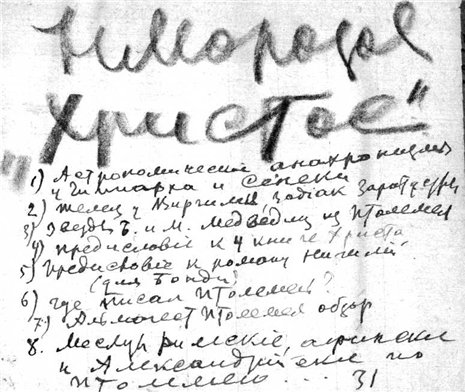 Н. Морозов
"Христос"
1) Астрономический анахронизм
у Гиппарха и Сенеки
2) Телец у Виргилия, зодиак Заратустры
3) Звезды Б. и М. Медведиц из Птолемея
4) Предисловіе к 4 книге Христа
5) Предисловіе к роману
(для Бонди)
6) Где писал Птолемей?
7) Альмагест Птолемея обзор
8. Месяцы римскіе,
и Александрійские по
Птолемею ... 31